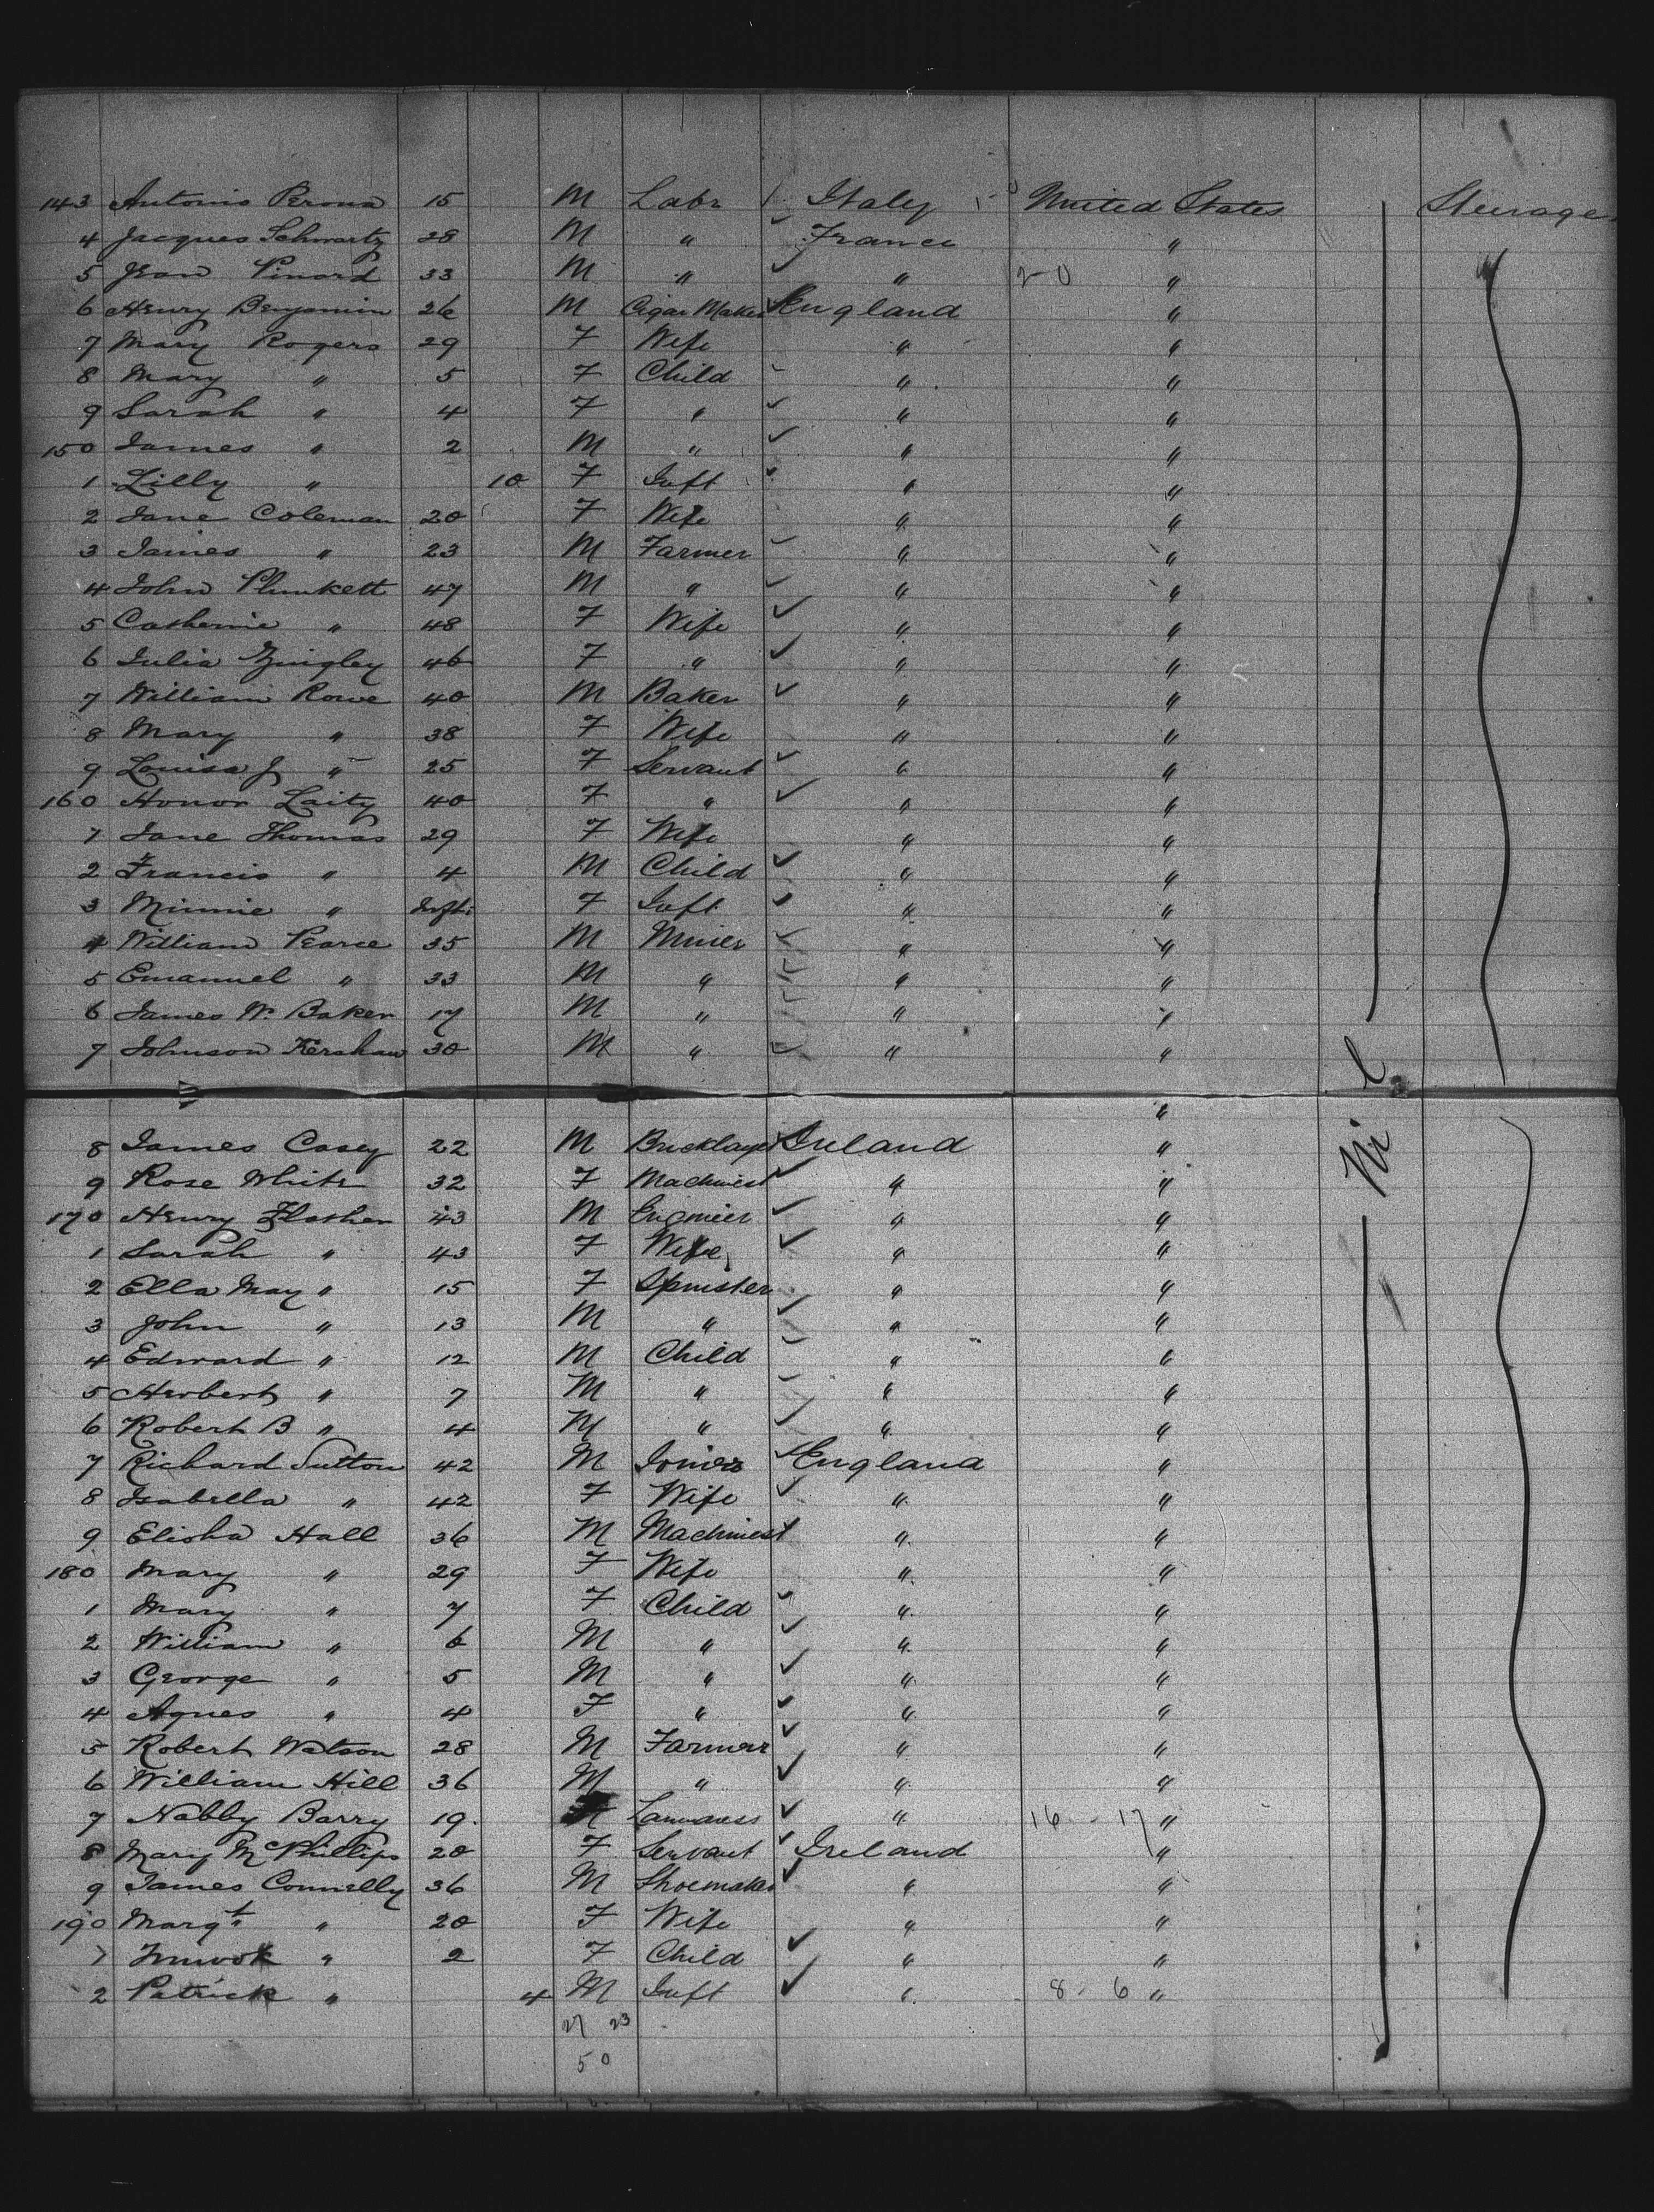 143 Antonio Perona 15 M Labr Italy United States Steerage
4 Jacques Schwartz 28 M " France "
5 Jean Pinard 33 M " " 2-0 "
6 Henry Benjamin 26 M Cigar Maker England "
7 Mary Rogers 29 F Wife " "
8 Mary " 5 F Child " "
9 Sarah " 4 F " " "
150 James " 2 M " " "
1 Lilly " 10 F Inft " "
2 Jane Coleman 20 F Wife " "
3 James " 23 M Farmer " "
4 John Plunkett 47 M " " "
5 Catherine " 48 F Wife " "
6 Julia 46 F " " "
7 William Rowe 40 M Baker " "
8 Mary " 38 F Wife " "
9 Louisa J " 25 F Servant " "
160 Honor Laity 40 F " " "
1 Jane Thomas 29 F Wife " "
2 Francis " 4 M Child " "
3 Minnie " Inft. F Inft " "
4 William Pearce 35 M Miner " "
5 Emanuel " 33 M " " "
6 James W. Baker 17 M " " "
7 Johnson Kershaw 30 M " " "
"
Nil
8 James Casey 22 M Bricklayer Ireland "
9 Rose White 32 F Machinist " "
170 Henry 43 M Engineer " "
1 Sarah " 43 F Wife " "
2 Ella May " 15 F Spinster " "
3 John " 13 M " " "
4 Edward " 12 M Child " "
5 Herbert " 7 M " " "
6 Robert B " 4 M " " "
7 Richard Sutton 42 M Joiner England "
8 Isabella " 42 F Wife " "
9 Elisha Hall 36 M Machinist " "
180 Mary " 29 F Wife " "
1 Mary " 7 F Child " "
2 William " 6 M " " "
3 George " 5 M " " "
4 Agnes " 4 F " " "
5 Robert Watson 28 M Farmer " "
6 William Hill 36 M " " "
7 Nabby Barry 19 " 16 - 17 "
8 Mary McPhillips 20 F Servant Ireland "
9 James Connelly 36 M Shoemaker " "
190 Margt " 20 F Wife " "
1 " 2 F Child " "
2 Patrick " 4 M Inft " 8 - 6 "
27 23
50